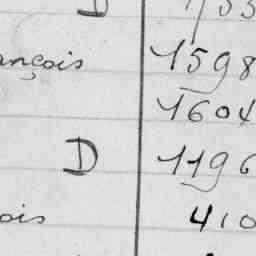 D
ançois 1598
1604
D 1196
ois 410